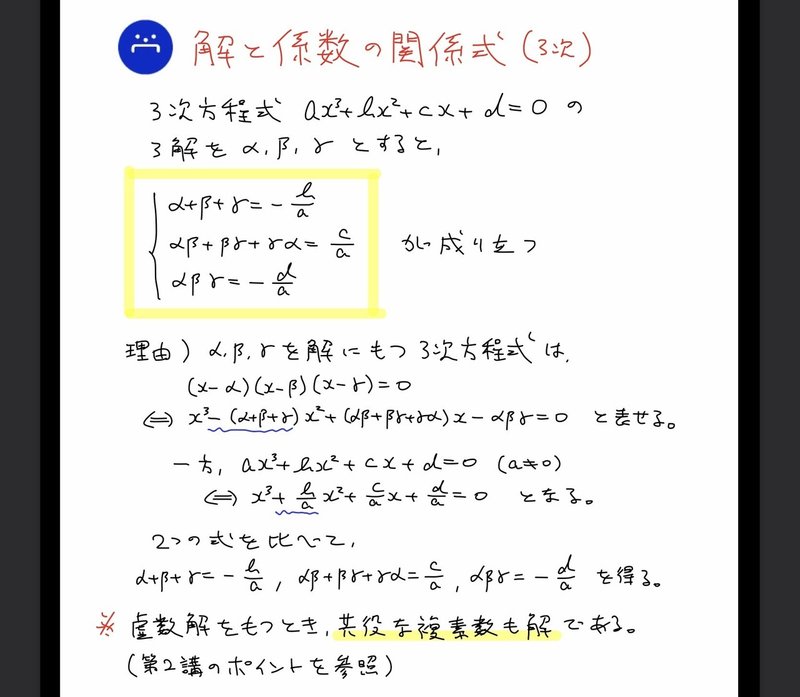 解と係数の関係式(3次)
3次方程式 ax³+bx²+cx+d=0 の
3解を α, β, γ とすると,
α+β+γ=-b/a
αβ+βγ+γα=c/a が成り立つ
αβγ=-d/a
理由) α, β, γを解にもつ3次方程式は,
(x-α)(x-β)(x-γ)=0
⇔ x³-(α+β+γ)x²+(αβ+βγ+γα)x-αβγ=0 と表せる。
一方, ax³+bx²+cx+d=0 (a≠0)
⇔ x³+b/a x²+c/a x+d/a=0 となる。
2つの式を比べて,
α+β+γ=-b/a, αβ+βγ+γα=c/a, αβγ=-d/a を得る。
※ 虚数解をもつとき, 共役な複素数も解である。
(第2講のポイントを参照)